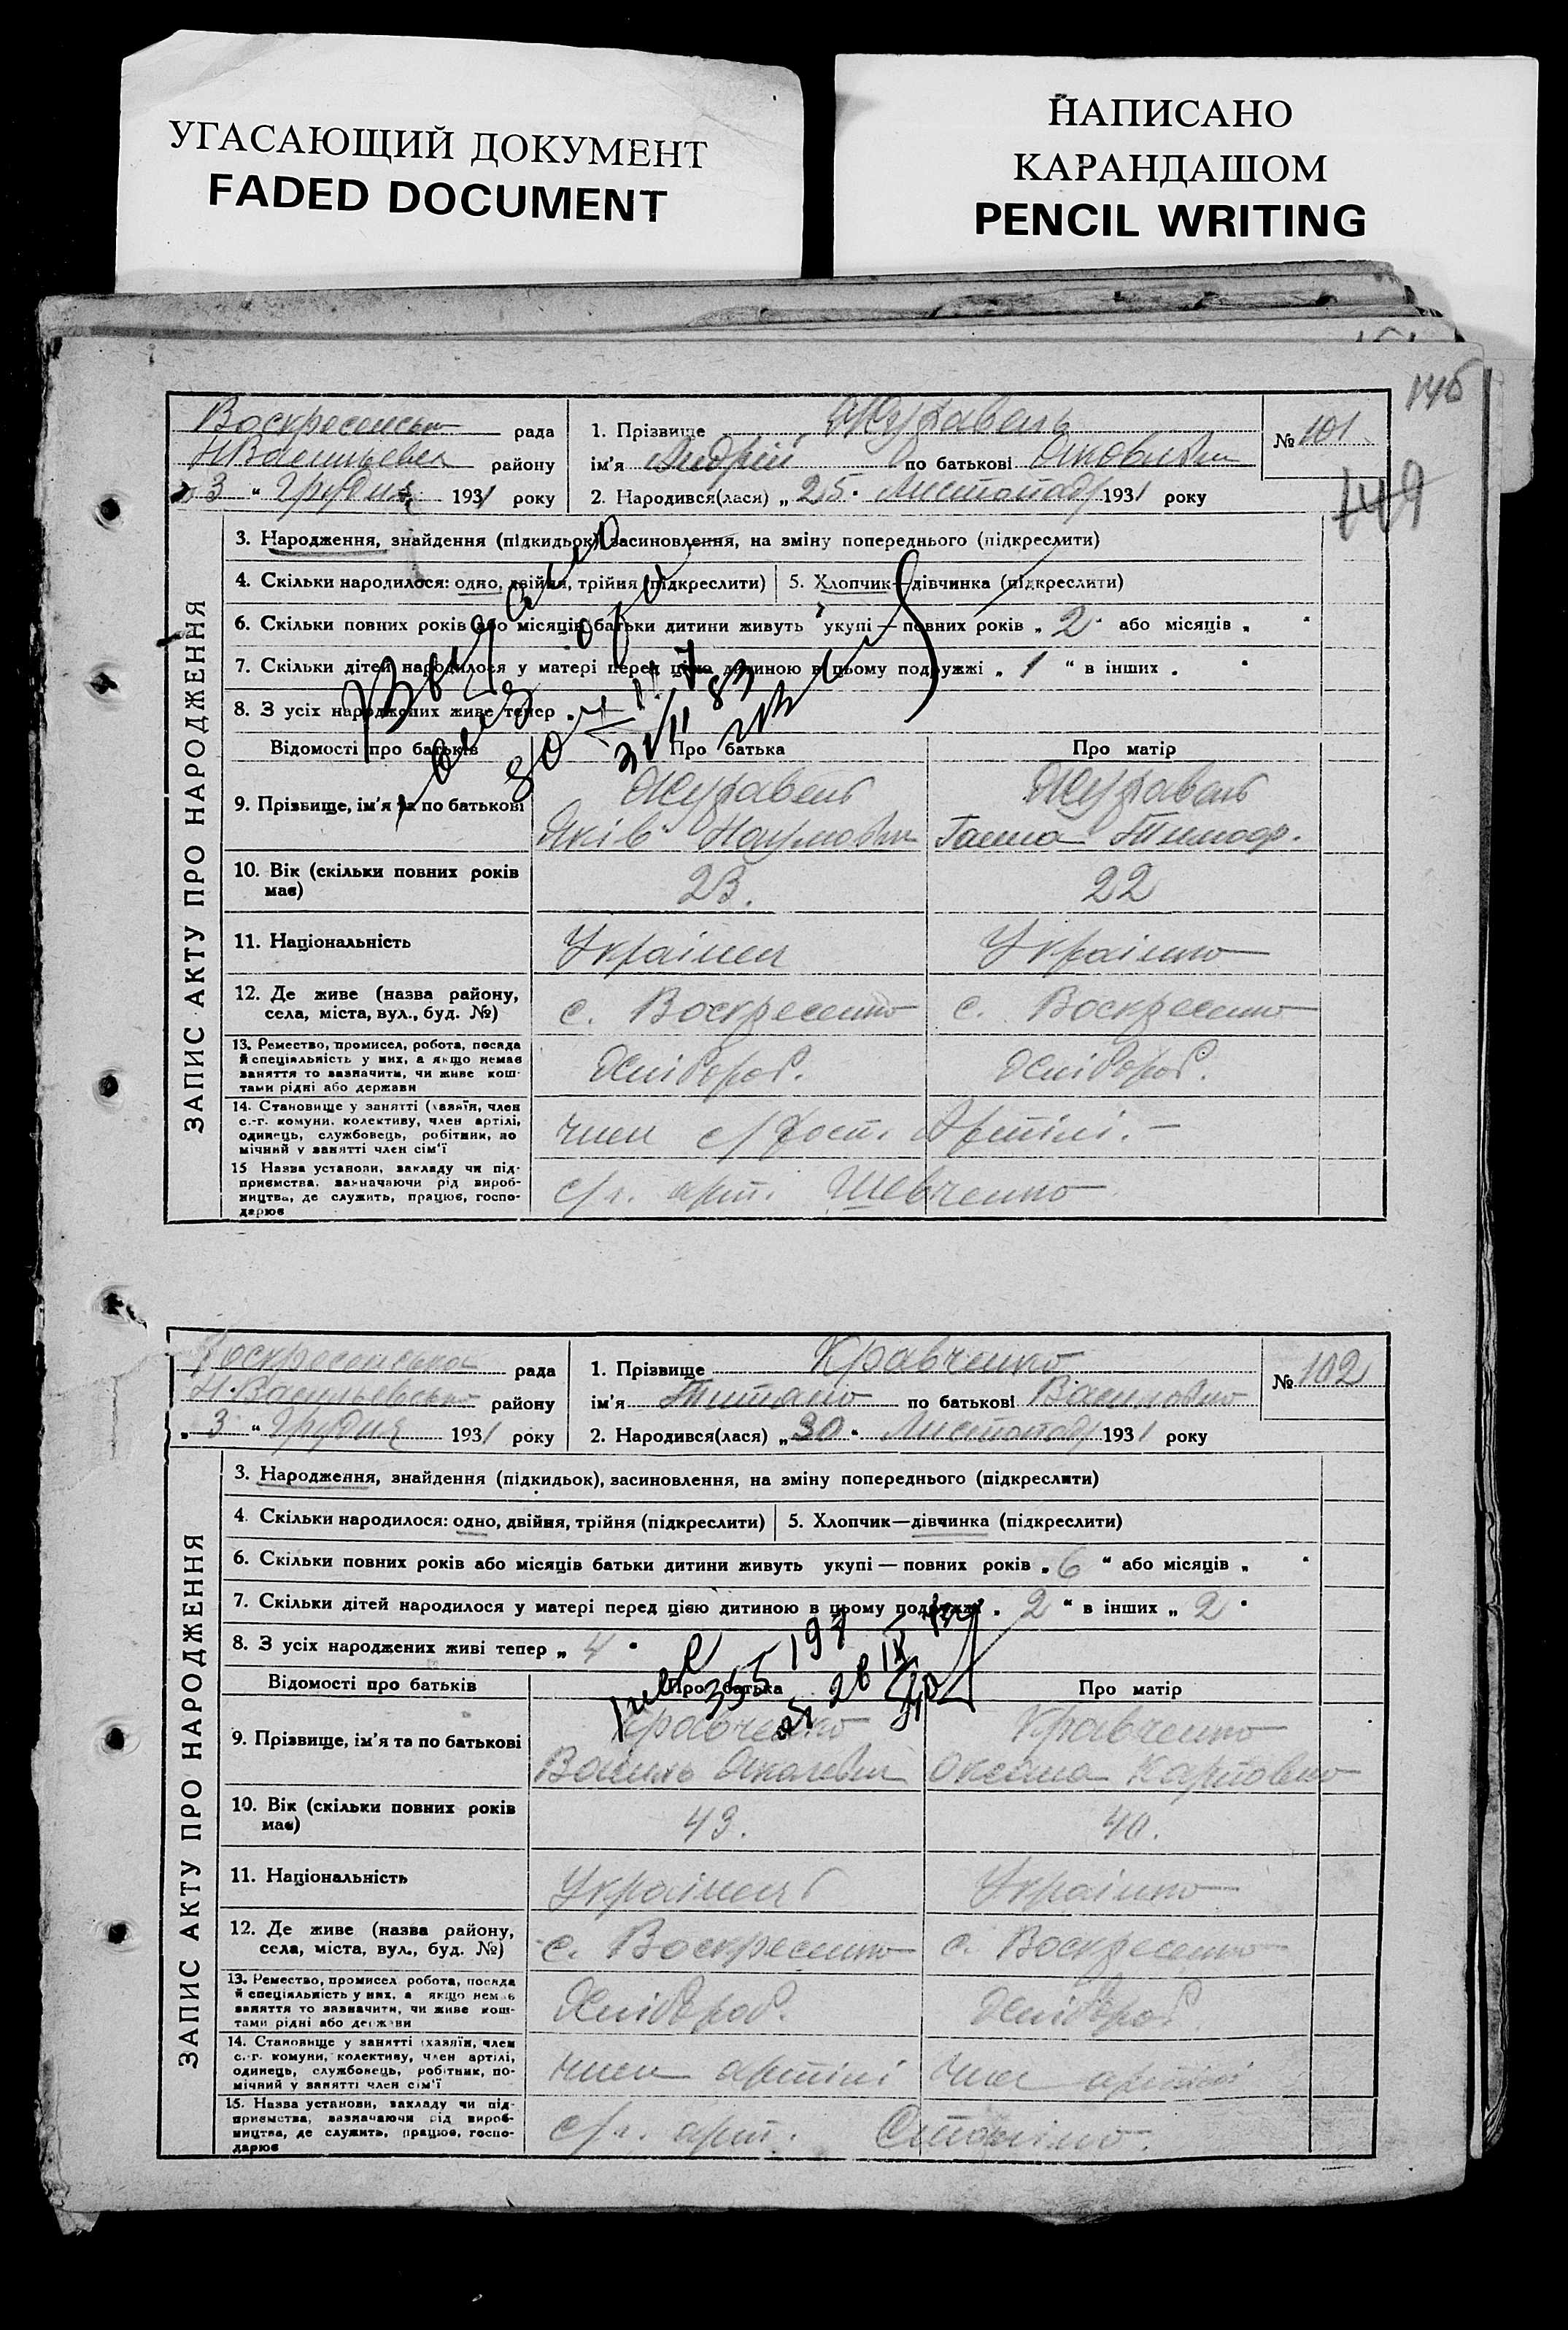 УГАСАЮЩИЙ ДОКУМЕНТ
FADED DOCUMENT
НАПИСАНО
КАРАНДАШОМ
PENCIL WRITING
146
149
Воскресенська рада
Н Васильевск району
„3 “ Грудня 1931 року
1. Прізвище Журавель
ім'я Андрій по батькові Якович
2. Народився(лася) „25“ Листопаду 1931 року
№ 101
ЗАПИС АКТУ ПРО НАРОДЖЕННЯ
3. Народження, знайдення (підкидьок) засиновлення, на зміну попереднього (підкреслити)
4. Скільки народилося: одно, двійня, трійня (підкреслити) 5. Хлопчик—дівчинка (підкреслити)
6. Скільки повних років або місяців батьки дитини живуть укупі — повних років „ 2 “ або місяців „ “
7. Скільки дітей народилося у матері перед цією дитиною в цьому подружжі „ 1 “ в інших „ “
8. З усіх народжених живе тепер „
Відомості про батьків Про батька Про матір
9. Прізвище, ім'я та по батькові Журавель Яків Наумович Журавель Ганна Тимоф.
10. Вік (скільки повних років має) 23. 22
11. Національність Українец Українка
12. Де живе (назва району, села, міста, вул., буд. №) с. Воскресенка с. Воскресенка
13. Ремество, промисел, робота, посада й спеціяльність у них, а якщо немає заняття то зазначити, чи живе коштами рідні або держави Хлібороб. Хлібороб.
14. Становище у занятті (хазяїн, член с.-г. комуни, колективу, член артілі, одинець, службовець, робітник, помічний у занятті член сім'ї член с/госп. Артілі. —
15 Назва установи, закладу чи підприємства, зазначаючи рід виробництва, де служить, працює, господарює с/г. арт. Шевченко
Воскресенська рада
Н. Васильевська району
„3 “ Грудня 1931 року
1. Прізвище Кравченко
ім'я Титана по батькові Василовна
2. Народився(лася) „30“ Листопаду 1931 року
№ 102
ЗАПИС АКТУ ПРО НАРОДЖЕННЯ
3. Народження, знайдення (підкидьок), засиновлення, на зміну попереднього (підкреслити)
4. Скільки народилося: одно, двійня, трійня (підкреслити) 5. Хлопчик—дівчинка (підкреслити)
6. Скільки повних років або місяців батьки дитини живуть укупі — повних років „ 6 “ або місяців „ “
7. Скільки дітей народилося у матері перед цією дитиною в цьому подружжі „ 2 “ в інших „ 2 “
8. З усіх народжених живі тепер „ 4 “
Відомості про батьків Про батька Про матір
9. Прізвище, ім'я та по батькові Кравченко Василь Кравченко Оксана Карповна
10. Вік (скільки повних років має) 43. 40.
11. Національність Українец Українка
12. Де живе (назва району, села, міста, вул., буд. №) с. Воскресенка с. Воскресенка
13. Ремество, промисел робота, посада й спеціяльність у них, а якщо немає заняття то зазначити, чи живе коштами рідні або держави Хлібороб. Хлібороб.
14. Становище у занятті (хазяїн, член с.-г. комуни, колективу, член артілі, одинець, службовець, робітник, помічний у занятті член сім'ї член артілі член артілі
15. Назва установи, закладу чи підприємства, зазначаючи рід виробництва, де служить, працює, господарює с/г. арт. Сталіна.